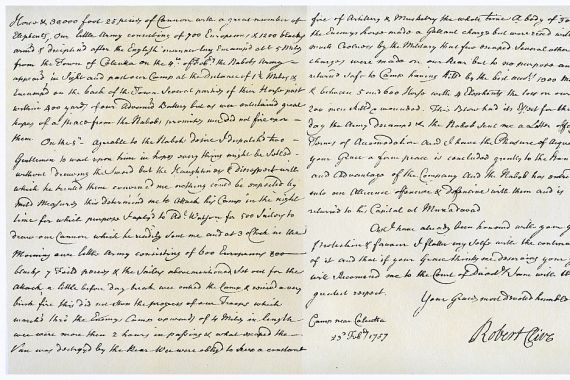 Horse & 30000 foot 25 pieces of Cannon with a great number of
Elephants, Our little Army consisting of 700 Europeans & 1200 blacks
arm'd & disciplin'd after the English manner lay Encamp'd at 5 Miles
from the Town of Calcutta on the 4th of Feb'y the Nabobs Army
appear'd in Sight and past our Camp at the distance of 1½ Miles &
Encamp'd on the back of the Town Several parties of their Horse past
within 400 yards of our advanced Battery but as we entertain'd great
hopes of a peace from the Nabobs promises we did not fire upon
them.
On the 5th agreable to the Nabobs desire I dispatch'd two
Gentlemen to wait upon him in hopes every thing might be Settled
without drawing the Sword but the Haughtiness & disrespect with
which he treated them convinced me nothing could be expected by
mild Measures this determined me to Attack his Camp in the night
time for which purpose I apply'd to Ad'l Watson for 500 Sailors to
draw our Cannon which he readily Sent me and at 3 oClock in the
Morning our little Army consisting of 600 Europeans 800
blacks 7 Field pieces & the Sailors abovemention'd Set out for the
Attack a little before day break we enter'd the Camp & receiv'd a very
brisk fire this did not Stop the progress of our Troops which
march'd thro the Enemys Camp upwards of 4 Miles in length
we were more than 2 hours in passing & what escap'd the
Van was destroy'd by the Rear We were obliged to keep a constant
fire of Artillery & Musketry the whole time A body of 300
the Enemys horse made a Gallant charge but were receiv'd with
much Coolness by the Military that few escaped Several other
charges were made on our Rear but to no purpose and
returned Safe to Camp having kill'd by the best acc'ts 1000 M
& between 5 and 600 Horse with 4 Elephants the loss on our
200 men kill'd & wounded. This Blow had its Effect for the
day the Army decamped & the Nabob Sent me a Letter offe
Terms of Accomodation and I have the Pleasure of Aquai
your Grace a firm peace is concluded greatly to the Hon
and Advantage of the Company And the Nabob has enter
into an Alliance offensive & Defensive with them and is
returned to his Capital at Muxadavad
As I have already been honour'd with your G
Protection & favour I flatter my Selfe with the continua
of it and that if your Grace thinks me deserving your
will Recomend me to the Court of
greatest respect.
Your Graces most devoted humble
Camp near Calcutta
23rd Feb'y 1757
Robert Clive